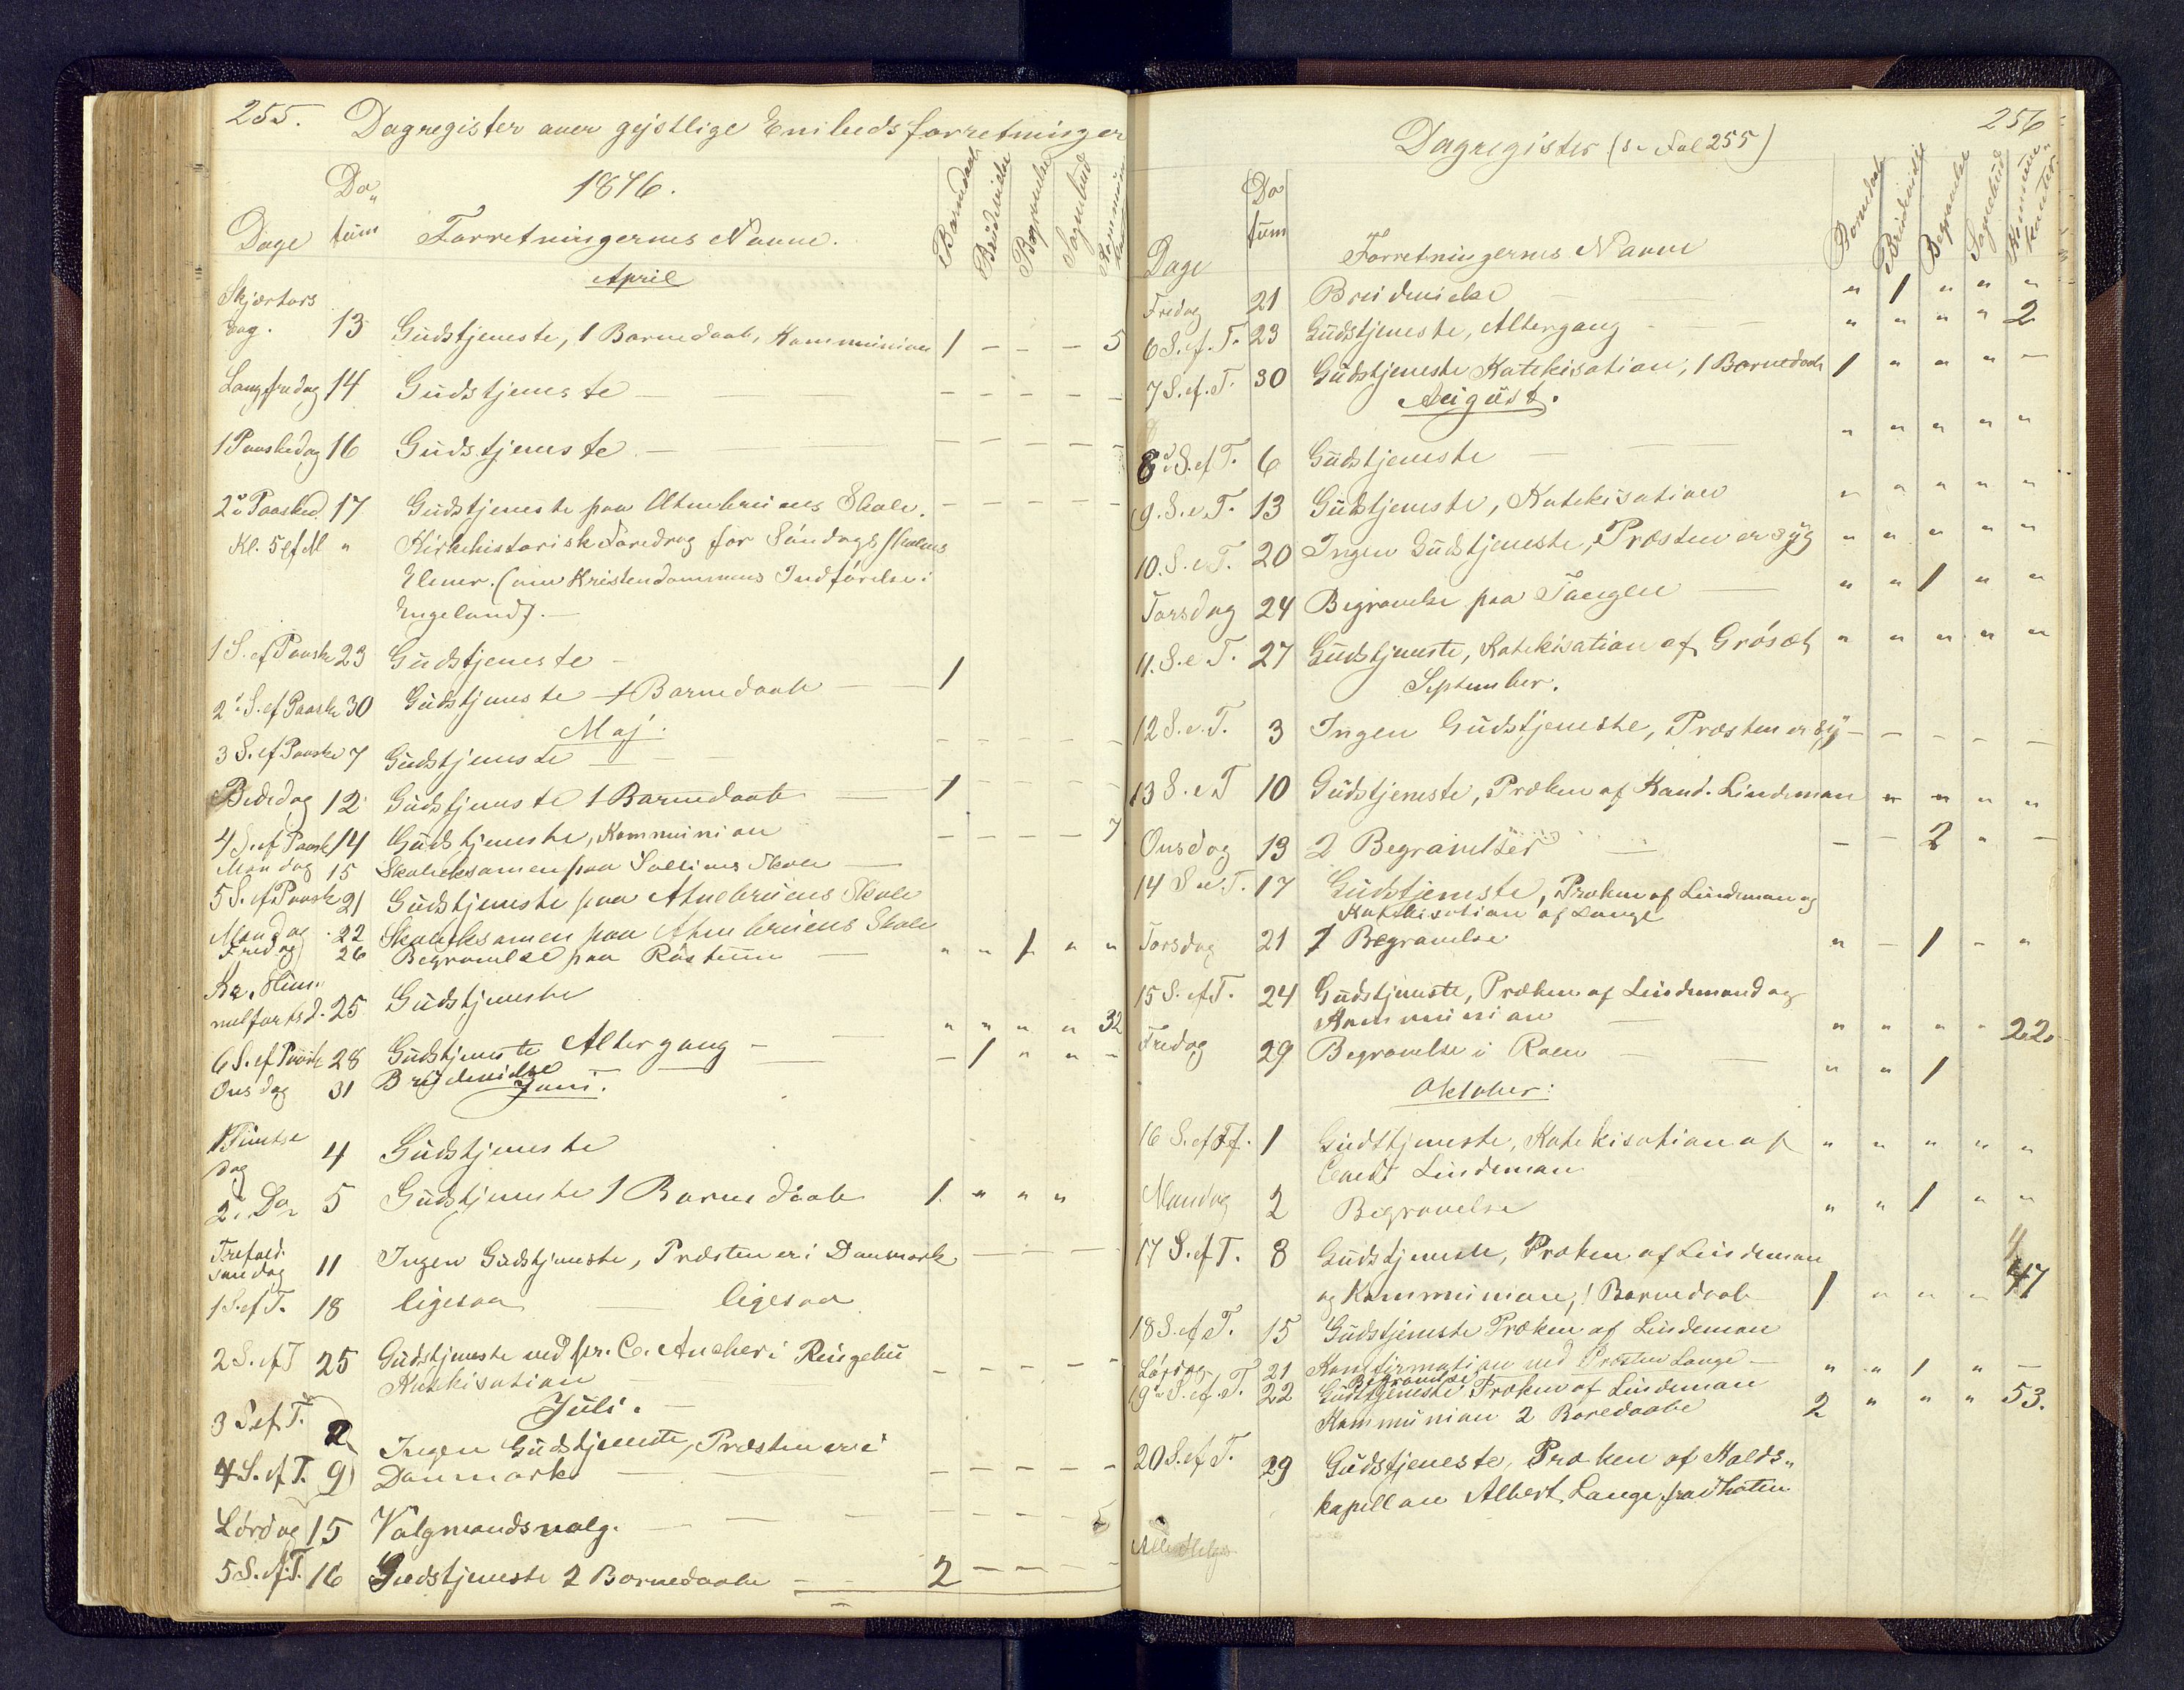 255.
Dagregister over gejstlige Embedsforretninger
1876.
Dage
Da„
tum
Forretningernes Navne.
Barnedaab
Brudevielse
Begravelse
Sognebud
Kommunikanter
April
Skjærtors
dag. 13 Gudstjeneste, 1 Barnedaab, Kommunion 1 – – – 5
Langfredag 14 Gudstjeneste – – – – –
1 Paaskedag 16 Gudstjeneste – – – – –
2. Paasked. 17 Gudstjeneste paa Atnebruens Skole. – – – – –
Kl. 5 ef M " Kirkehistorisk Foredrag for Söndagsskolens
Elever. (om Kristendommens Indförelse i
Engeland). –
1 S. ef Paaske 23 Gudstjeneste –
2. S. ef Paaske 30 Gudstjeneste 1 Barnedaab – 1
Maj.
3 S. ef Paaske 7 Gudstjeneste – – – – –
Bededag 12 Gudstjeneste 1 Barnedaab – 1 – – – –
4 S. ef Paask 14 Gudstjeneste, Kommunion – – – – 7
Mandag 15 Skoleksamen paa Solliens Skole –
5 S. ef Paask 21 Gudstjeneste paa Atnebruens Skole
Mandag 22 Skoleksamen paa Atnebruens Skole
Fredag 26 Begravelse paa Råstuen – " " 1 " "
Kr. Him„
melfartsd. 25 Gudstjeneste
6 S. ef Paask 28 Gudstjeneste Altergang – " " " " 32
Onsdag 31 Brudevielse – 1 " " –
Juni.
1. Pintse
dag 4 Gudstjeneste
2. Do 5 Gudstjeneste 1 Barnedaab 1. " " "
Trefold.
söndag 11 Ingen Gudstjeneste, Præsten er i Danmark – – – –
1 S. ef T. 18 ligesaa – ligesaa
2 S. ef T 25 Gudstjeneste ved pr. C. Ancher i Ringebu – – – – –
Katekisation
Juli.
3 S. ef T. 2 Ingen Gudstjeneste, Præsten er i
4 S. ef T. 9 Danmark – – – – –
Lördag 15 Valgmandsvalg. – – – –
5 S. ef. T. 16 Gudstjeneste 2 Barnedaab – 2 – – –
256
Dagregister (se Fol 255)
Dage
Da
tum
Forretningernes Navne
Barnedaab
Brudevielse
Begravelse
Sognebud
Kommuni„
kanter.
Fredag 21 Brudevielse – " 1 " " "
6 S. ef. T. 23 Gudstjeneste, Altergang – " " " " 2
7 S. ef. T. 30 Gudstjeneste Katekisation, 1 Barnedaab 1 " " " –
August.
8. S. ef T. 6 Gudstjeneste – " " " " "
9. S. e T. 13 Gudstjeneste, Katekisation " " " " "
10. S. e T. 20 Ingen Gudstjeneste, Præsten er syg " " " " "
Torsdag 24 Begravelse paa Tangen – " " 1 " "
11. S. e T. 27 Gudstjeneste, Katekisation af Grösæt " " " " "
September.
12 S. e. T. 3 Ingen Gudstjeneste, Præsten er sy – – – – –
13 S. e T 10 Gudstjeneste, Præken af Kand. Lindeman " " " "
Onsdag 13 2 Begravelser – – – 2 " –
14 S e. T. 17 Gudstjeneste, Præken af Lindeman og
Katekisation af Lange
Torsdag 21 1 Begravelse " – 1 – "
15 S. ef T. 24 Gudstjeneste, Præken af Lindemand og
Kommunion – " " " " 22.
Fredag 29 Begravelse i Roen – " " 1
Oktober:
16 S. ef T. 1 Gudstjeneste, Katekisation af " " " " "
Cand Lindeman
Mandag 2 Begravelse " " 1 " "
17 S. ef T. 8 Gudstjeneste, Præken af Lindeman
og Kommunion, 1 Barnedaab 1 " " " 47
18 S. ef T. 15 Gudstjeneste Præken af Lindeman
Lördag 21 Konfirmation ved Præsten Lange – " " 1 " –
Begravelse
19. S. ef. T. 22 Gudstjeneste Præken af Lindeman
Kommunion 2 Baredaabe 2 " " " 53.
20 S. ef T. 29 Gudstjeneste, Præken af Kalds„
kapellan Albert Lange fra
Alle Helge